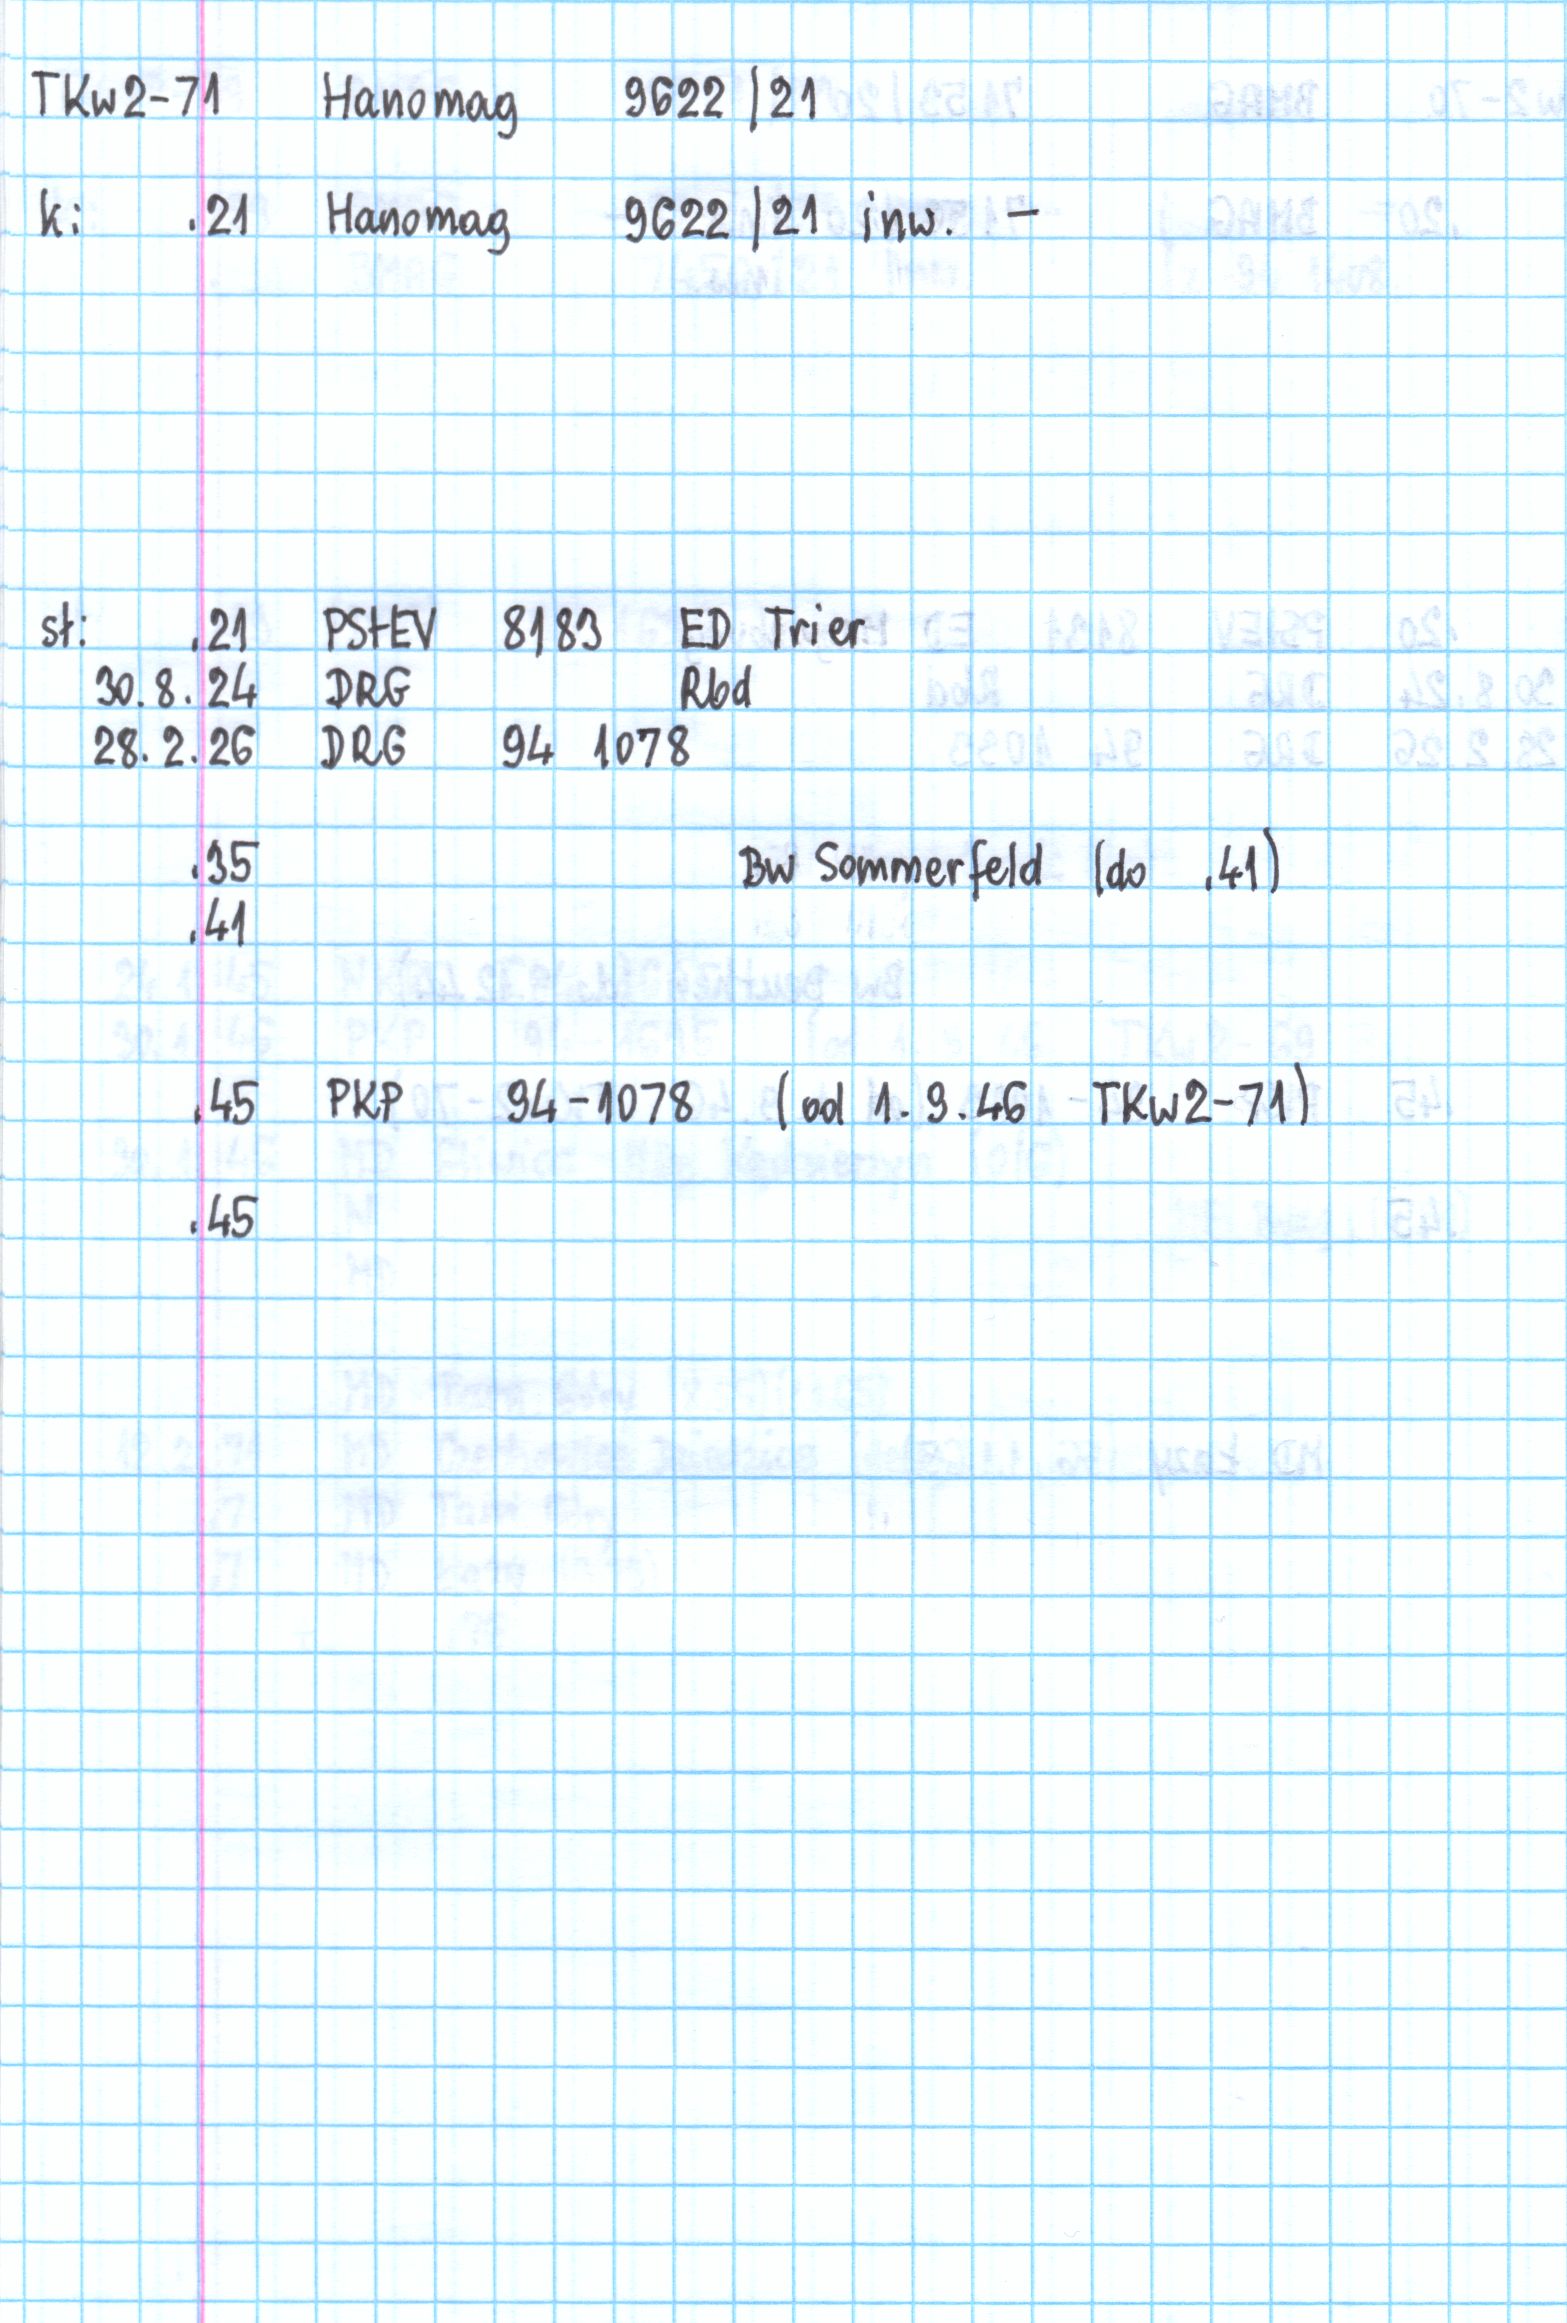 TKw2-71 Hanomag 9622/21
k: .21 Hanomag 9622/21 inw. -
st: .21 PStEV 8183 ED Trier
30.8.24 DRG Rbd
28.2.26 DRG 94 1078
.35 Bw Sommerfeld (do .41)
.41
.45 PKP 94-1078 (od 1.9.46 TKw2-71)
.45